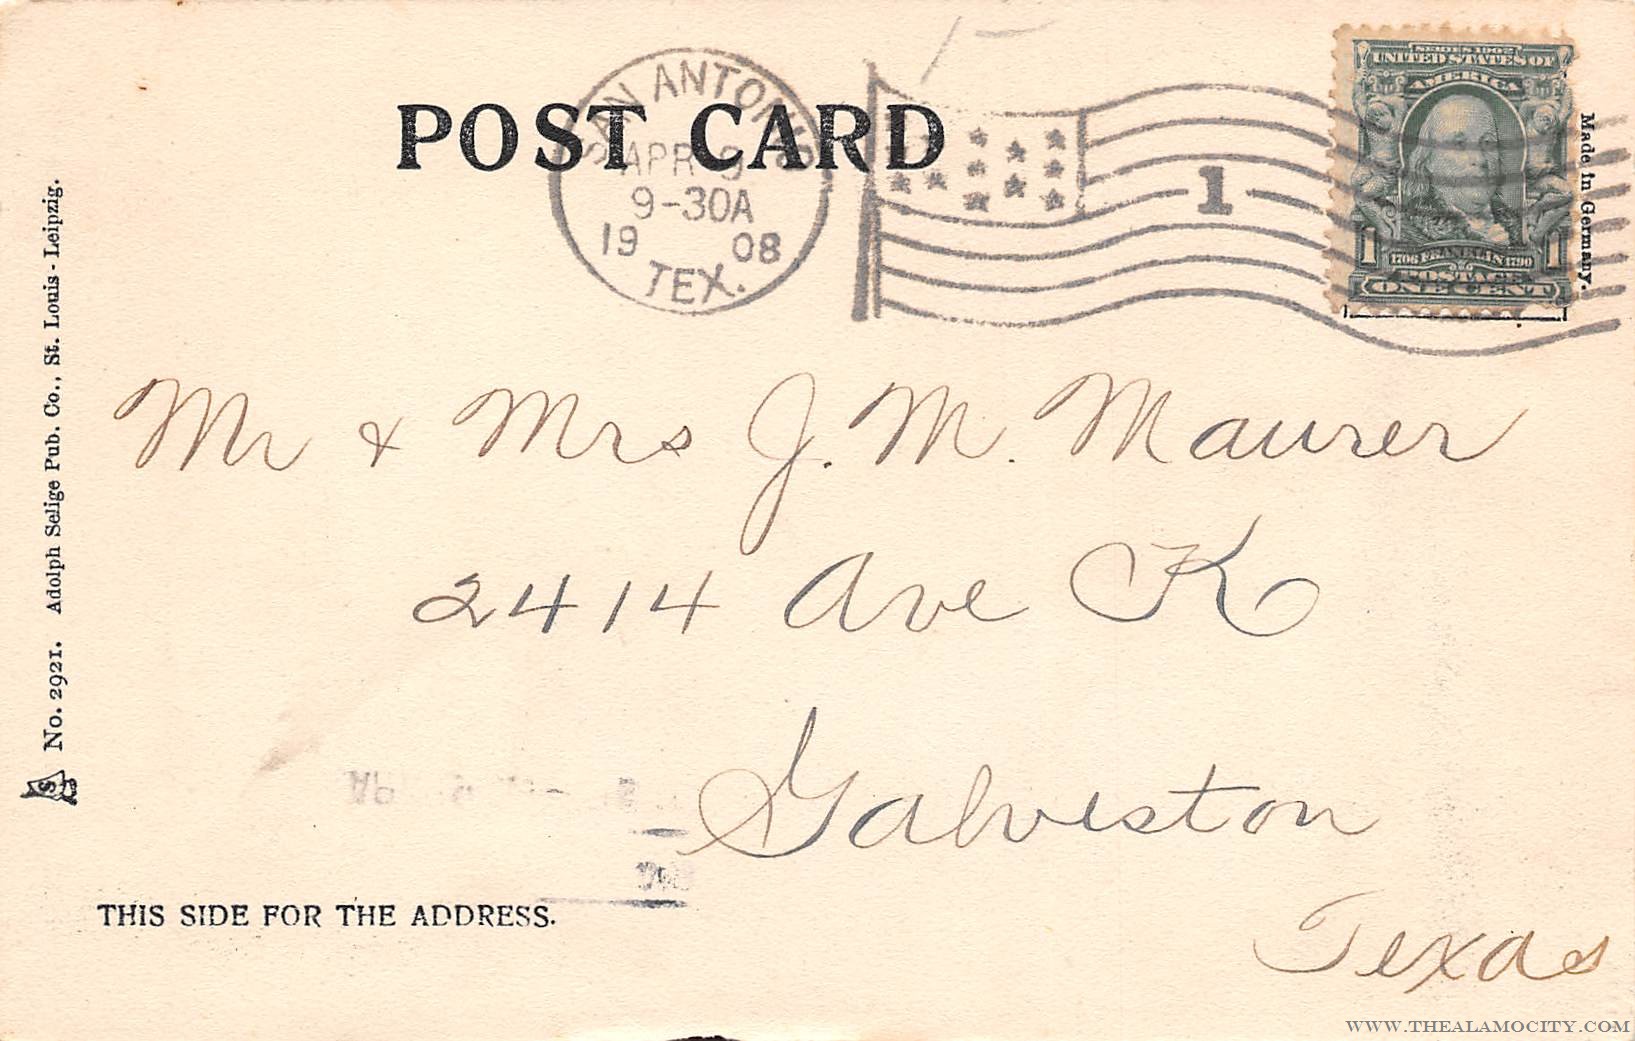 POST CARD
SAN ANTONIO
APR 9
9-30A
19 08
TEX.
1
SERIES 1902
UNITED STATES OF
AMERICA
1 1706 FRANKLIN 1790 1
POSTAGE
ONE CENT
Made in Germany.
Mr & Mrs J. M. Maurer
2414 Ave K
Galveston
Texas
THIS SIDE FOR THE ADDRESS.
No. 2921. Adolph Selige Pub. Co., St. Louis - Leipzig.
WWW.THEALAMOCITY.COM